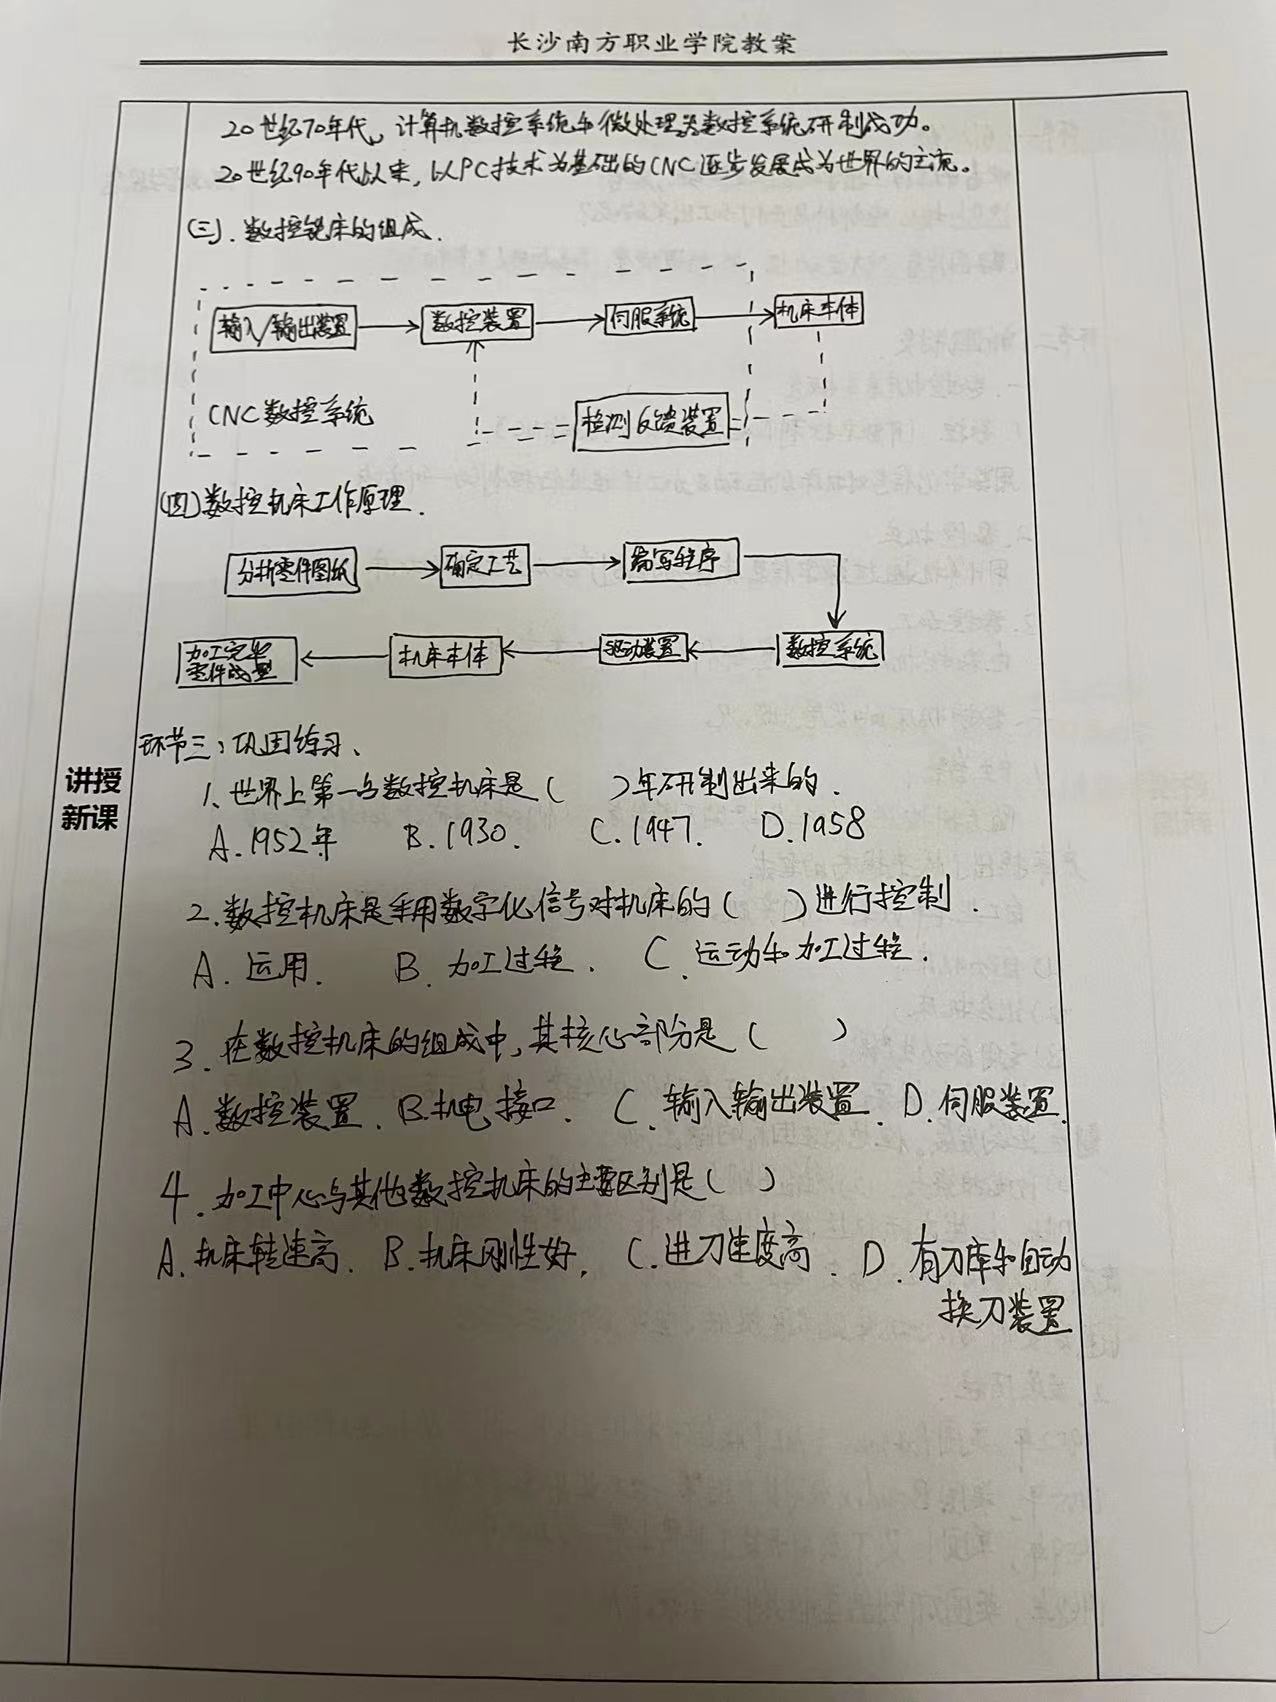 长沙南方职业学院教案
20世纪70年代，计算机数控系统和微处理器数控系统研制成功。
20世纪90年代以来，以PC技术为基础的CNC逐步发展成为世界的主流。
(三).数控铣床的组成.
输入/输出装置
数控装置
伺服系统
机床本体
CNC数控系统
检测反馈装置
(四)数控机床工作原理.
分析零件图纸
确定工艺
编写程序
加工完毕
零件成型
机床本体
驱动装置
数控系统
环节三:巩固练习、
讲授
新课
1、世界上第一台数控机床是( )年研制出来的.
A.1952年 B.1930. C.1947. D.1958
2.数控机床是采用数字化信号对机床的( )进行控制.
A.运用. B.加工过程. C.运动和加工过程.
3.在数控机床的组成中,其核心部分是( )
A.数控装置. B.机电接口. C.输入输出装置. D.伺服装置.
4.加工中心与其他数控机床的主要区别是( )
A.机床转速高. B.机床刚性好. C.进刀速度高. D.有刀库和自动
换刀装置